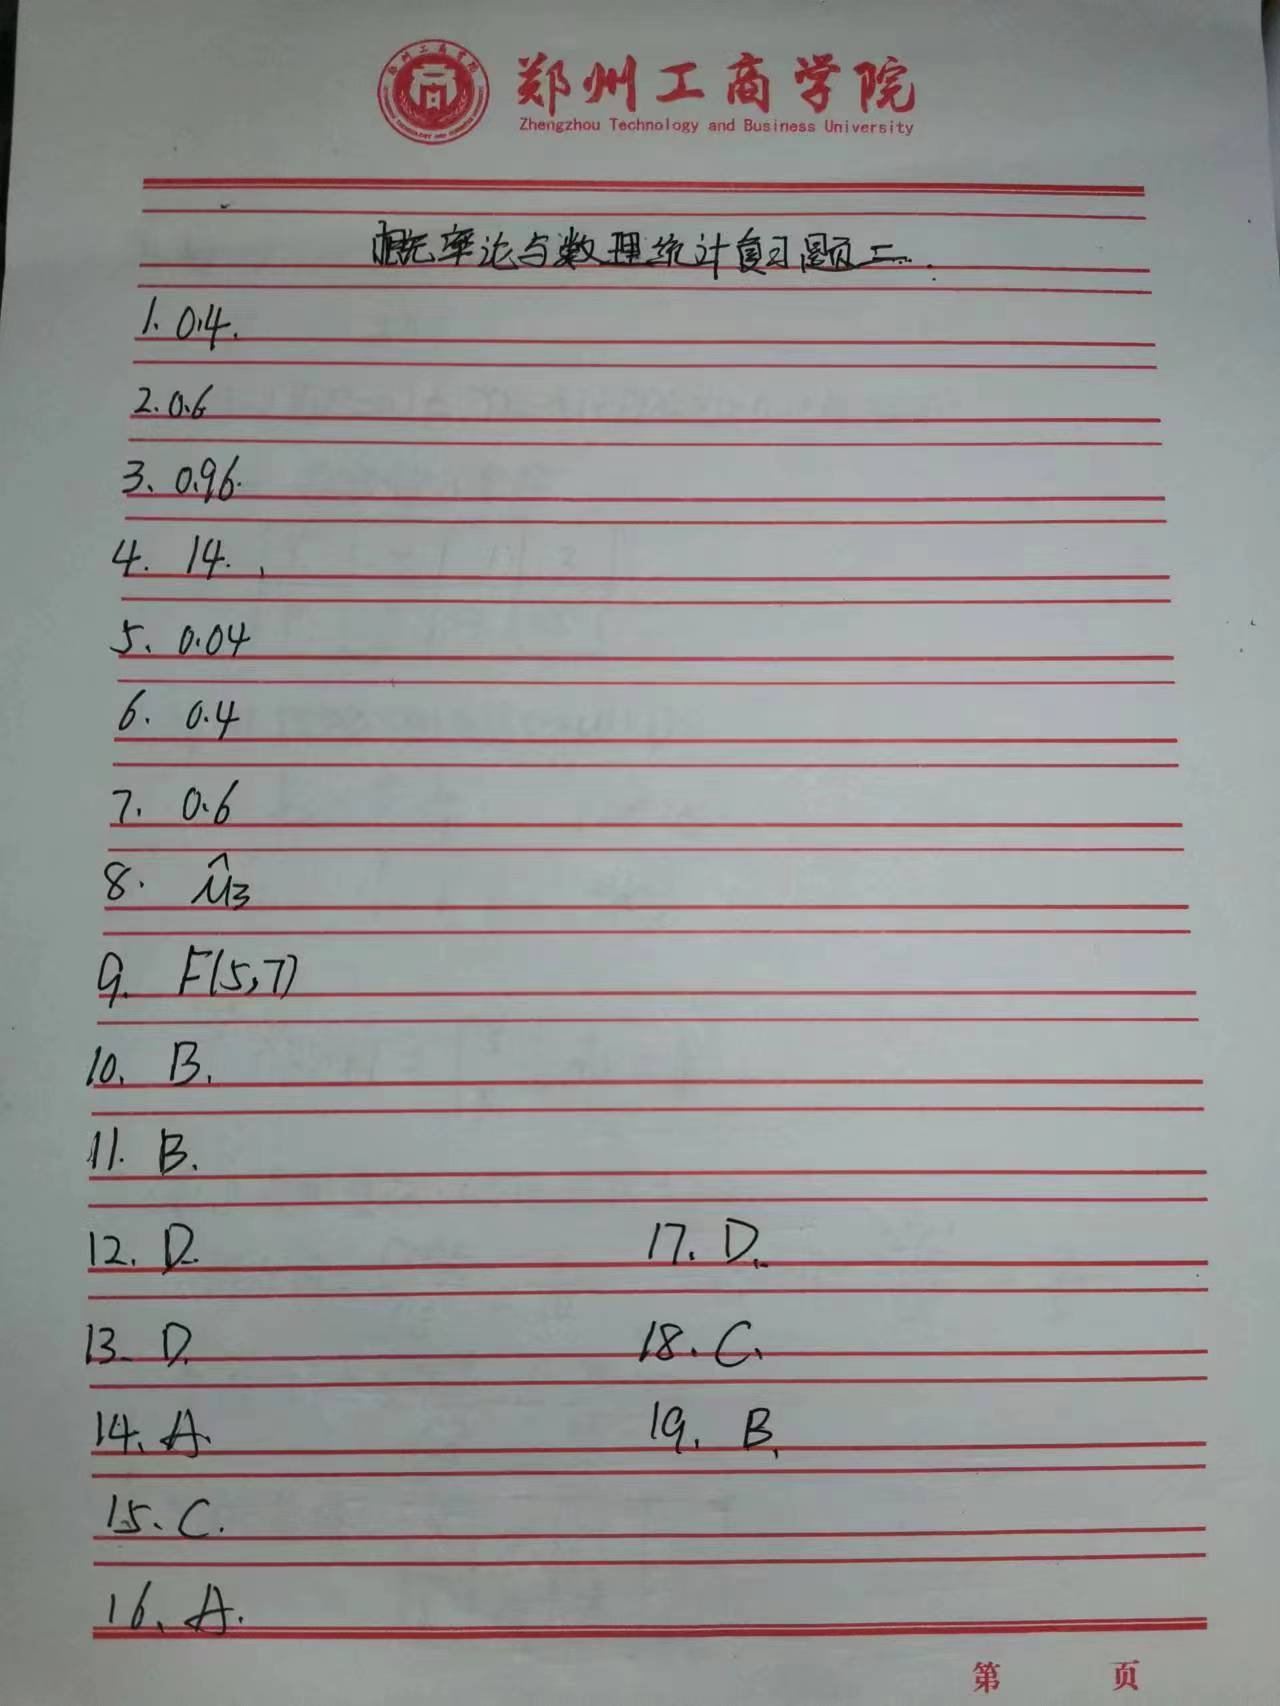 郑州工商学院
Zhengzhou Technology and Business University
概率论与数理统计复习题二.
1. 0.4.
2. 0.6
3、0.96.
4. 14.
5、0.04
6. 0.4
7. 0.6
8. μ̂3
9. F(5,7)
10. B.
11. B.
12. D.
17. D.
13. D.
18. C.
14. A.
19. B.
15. C.
16. A.
第 页